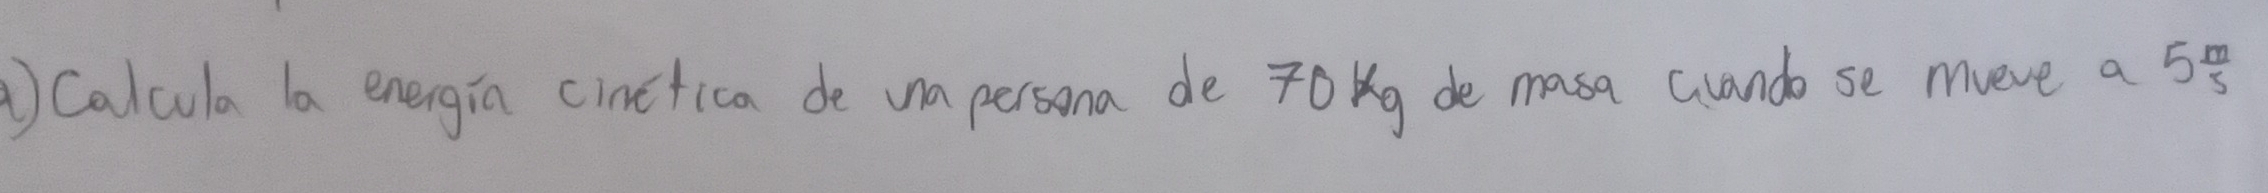 a) Calcula la energía cinética de una persona de 70 Kg de masa cuando se mueve a 5 m/s